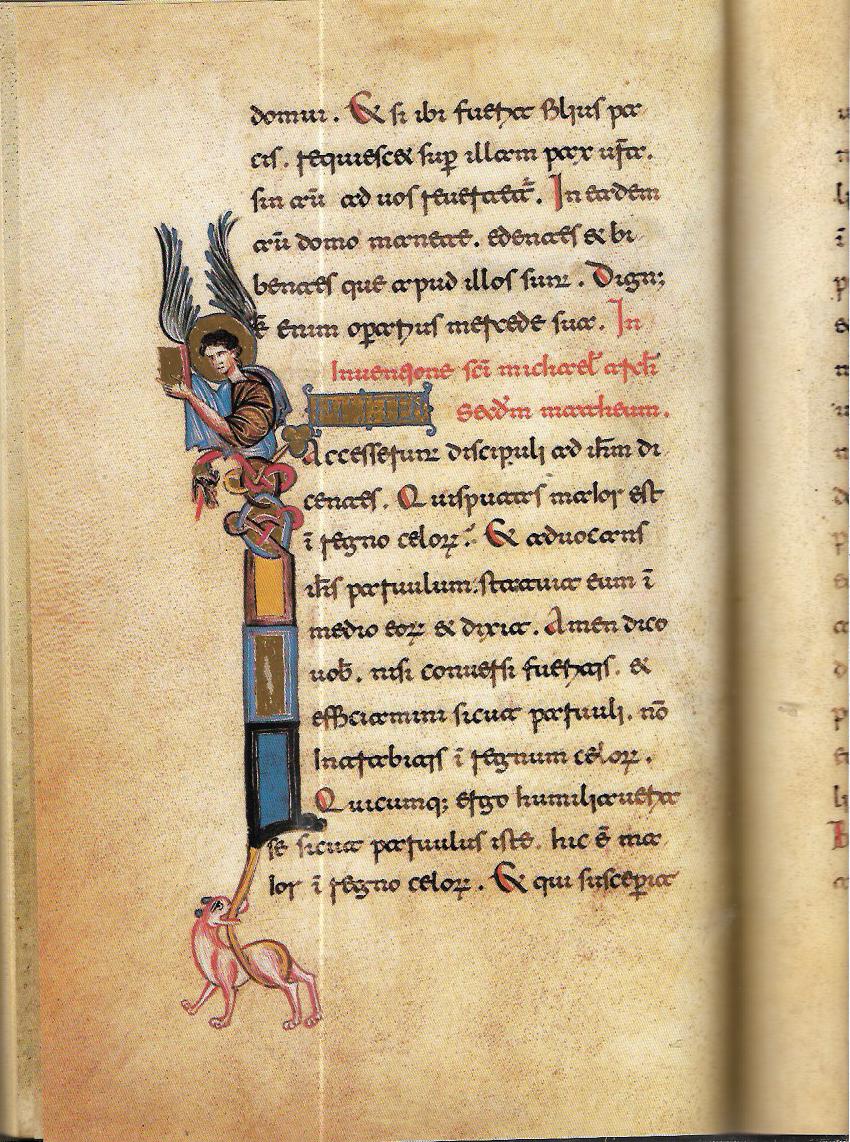 domui. Et si ibi fuerit filius pa
cis. requiescet sup̄ illam pax ur̄a.
sin aū ad uos reuertetur̄. In eadem
aū domo manete. edentes & bi
bentes que apud illos sunt. Dign;
ē enim operarius mercede sua. In
Inuentione sc̄i michael̄ archī
Secd̄m matheum.
Accesserunt discipuli ad ih̄m di
centes. Quis putas maior est
ī regno celoꝝ? Et aduocans
ih̄s paruulum. statuit eum ī
medio eoꝝ & dixit. Amen dico
uob̄. nisi conuersi fueritis. &
efficiamini sicut paruuli. nō
Intrabitis ī regnum celoꝝ.
Quicumq; ergo humiliauerit
se sicut paruulus iste. hic ē ma
ior ī regno celoꝝ. Et qui susceperit